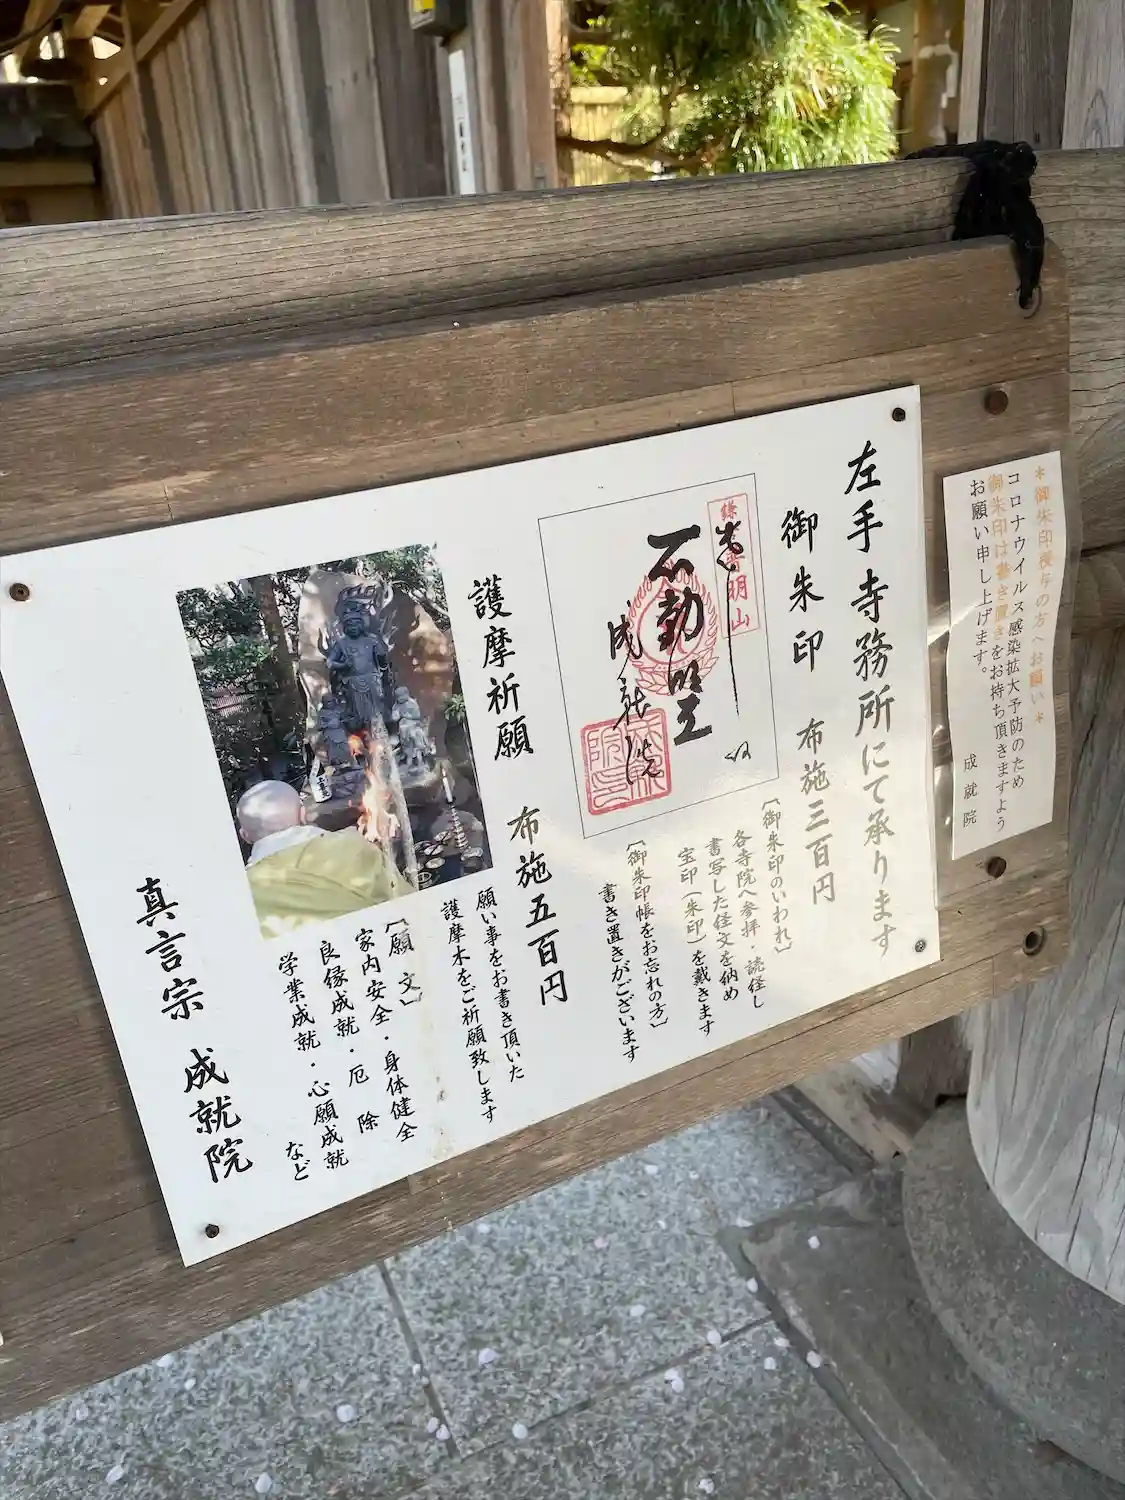 *御朱印授与の方へお願い*
コロナウイルス感染拡大予防のため
御朱印は書き置きをお持ち頂きますよう
お願い申し上げます。
成就院
左手寺務所にて承ります
御朱印 布施三百円
〔御朱印のいわれ〕
各寺院へ参拝・読経し
書写した経文を納め
宝印(朱印)を戴きます
〔御朱印帳をお忘れの方〕
書き置きがございます
不動明王
成就院
護摩祈願 布施五百円
願い事をお書き頂いた
護摩木をご祈願致します
〔願文〕
家内安全・身体健全
良縁成就・厄除
学業成就・心願成就
など
真言宗 成就院